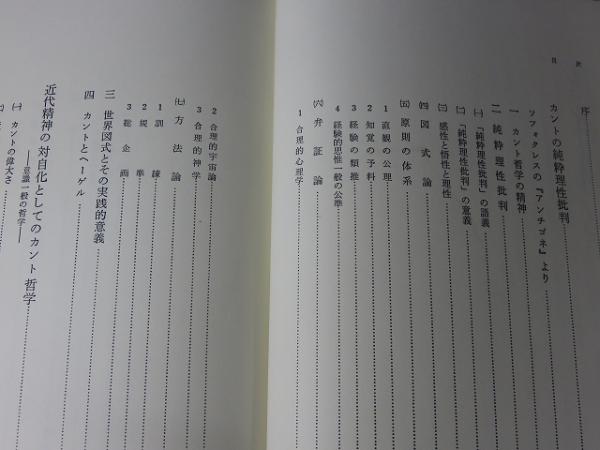 目次
序
カントの純粋理性批判
ソフォクレスの『アンチゴネ』より
一 カント哲学の精神
二 純粋理性批判
㈠ 『純粋理性批判』の語義
㈡ 『純粋理性批判』の意義
㈢ 感性と悟性と理性
㈣ 図式論
㈤ 原則の体系
1 直観の公理
2 知覚の予料
3 経験の類推
4 経験的思惟一般の公準
㈥ 弁証論
1 合理的心理学
2 合理的宇宙論
3 合理的神学
㈦ 方法論
1 訓練
2 規準
3 総企画
三 世界図式とその実践的意義
四 カントとヘーゲル
近代精神の対自化としてのカント哲学
——意識一般の哲学——
㈠ カントの偉大さ